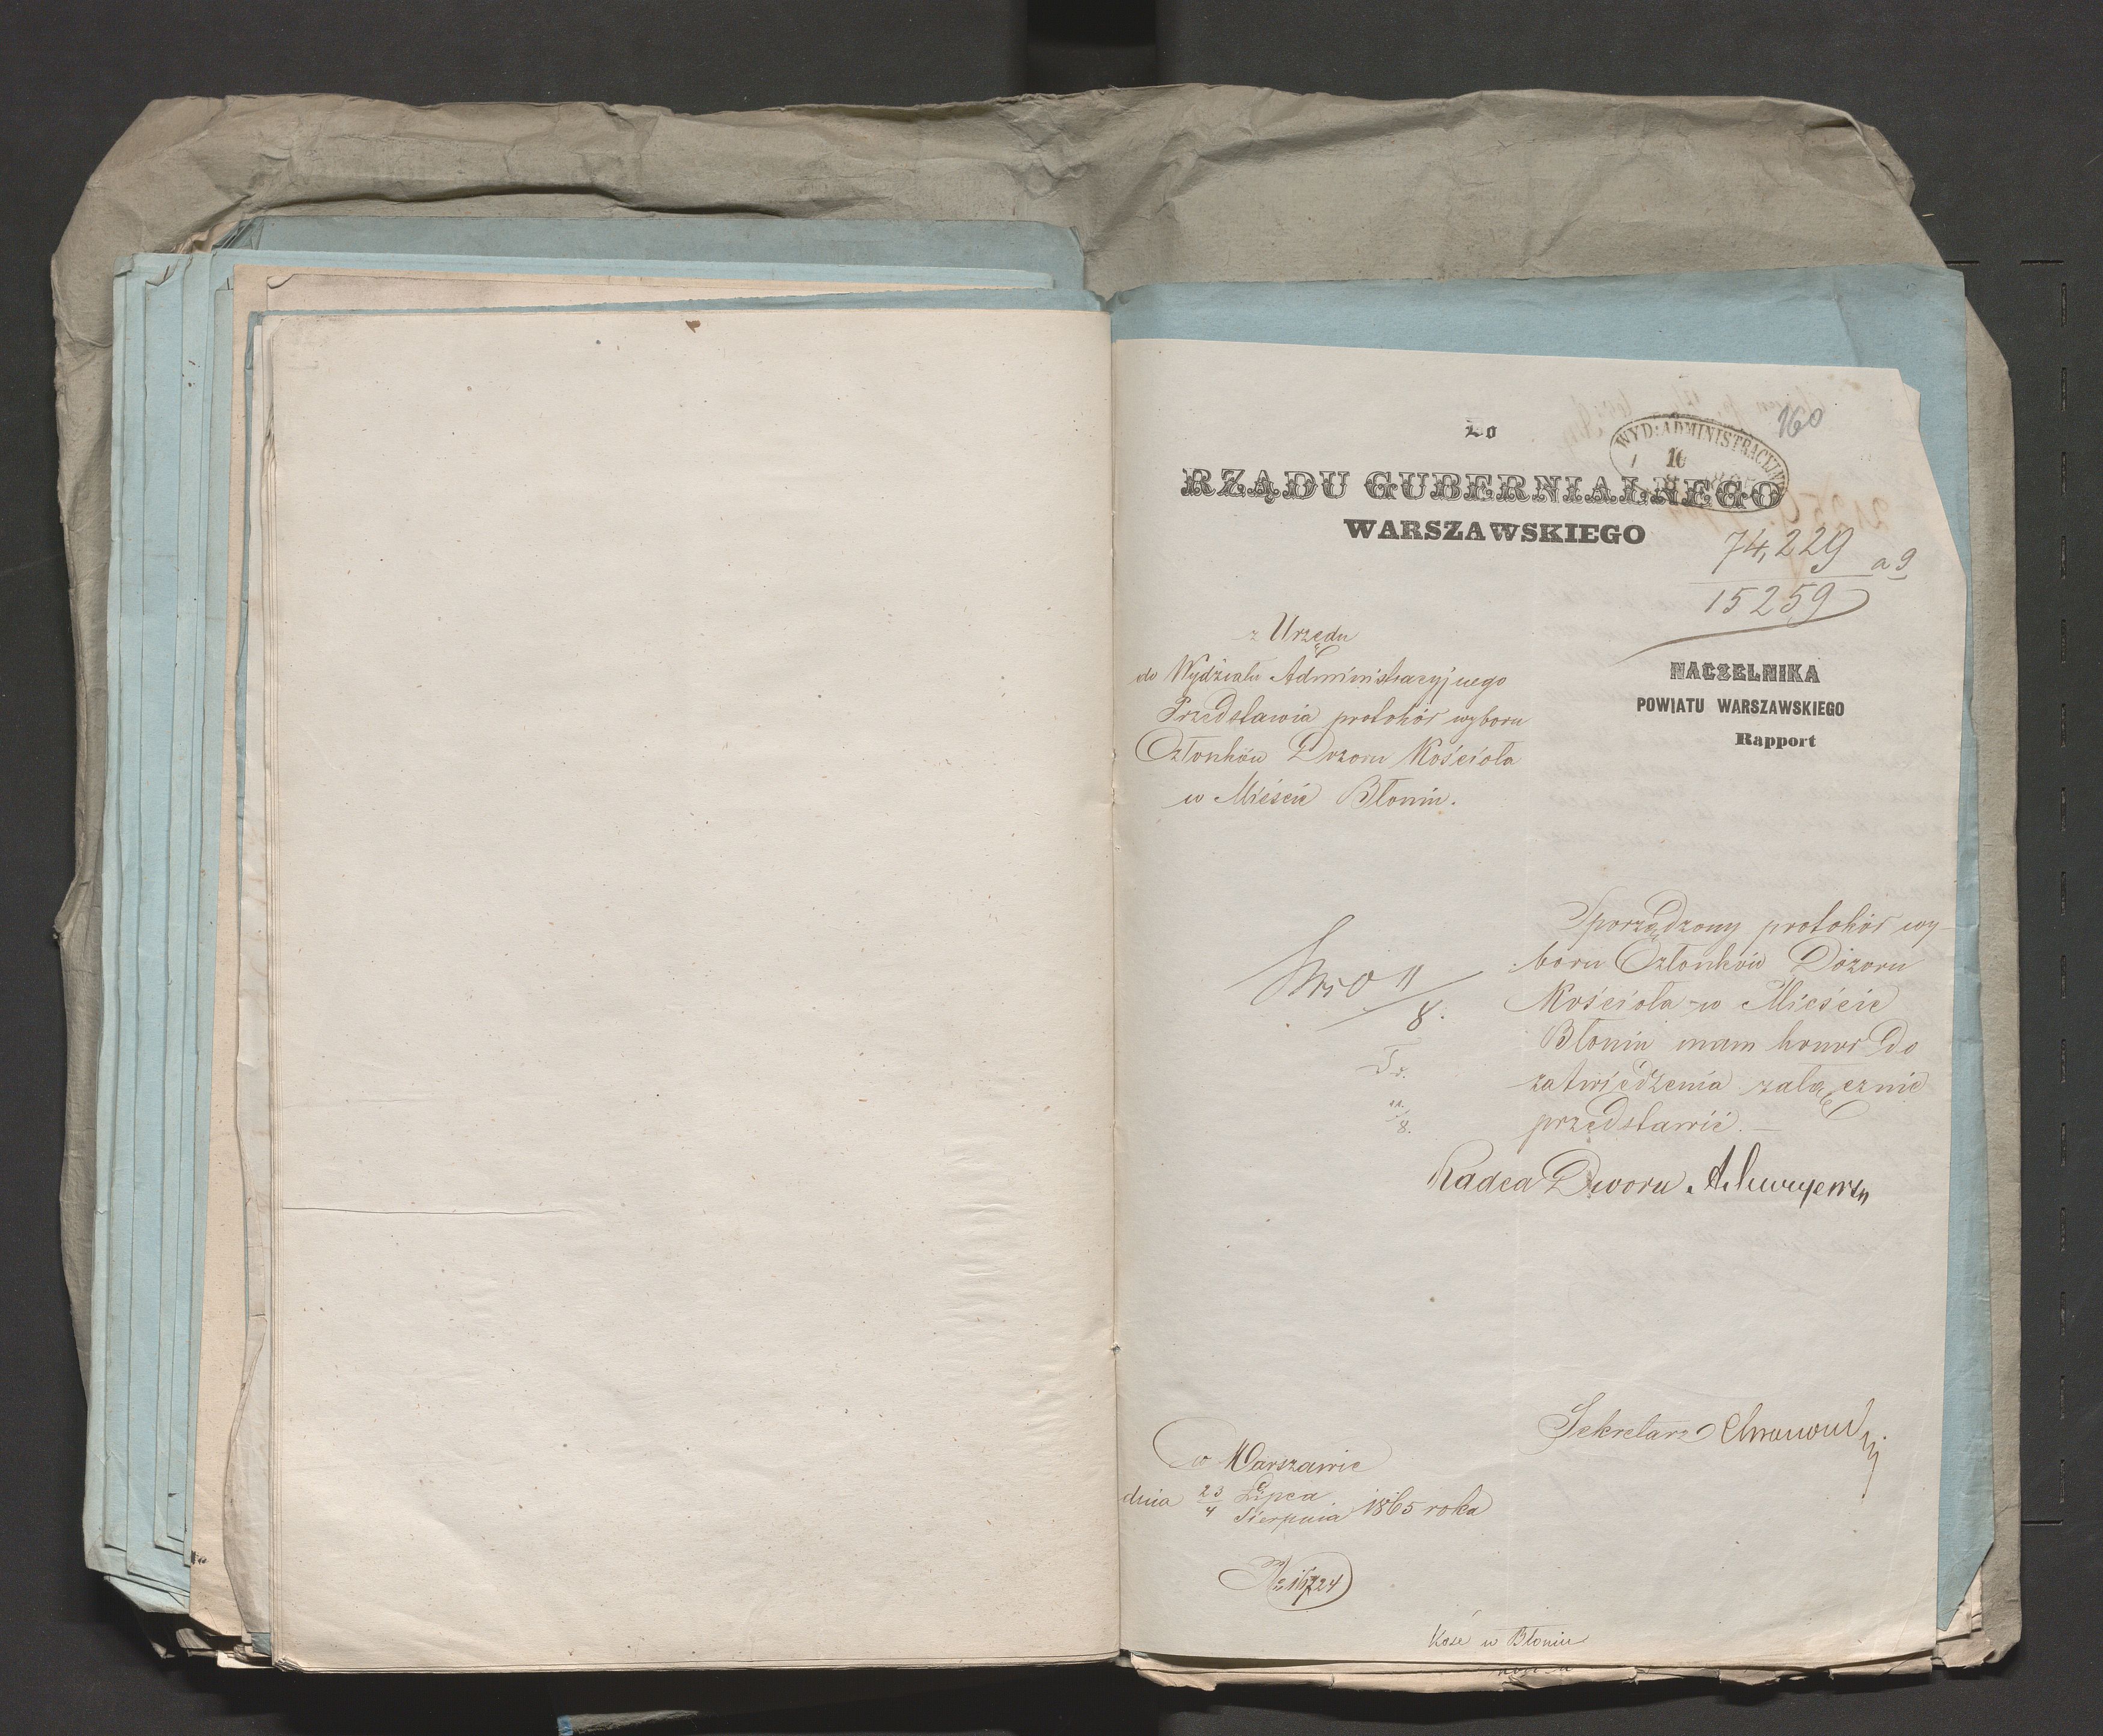 160
Do
WYD: ADMINISTRACYJNY
10
RZĄDU GUBERNIALNEGO
WARSZAWSKIEGO
74,229 a 9
15259
z Urzędu
do Wydziału Administracyjnego
Przedstawia protokół wyboru
Członków Dozoru Kościoła
w Mieście Błoniu.
NACZELNIKA
POWIATU WARSZAWSKIEGO
Rapport
Sporządzony protokół wy-
boru Członków Dozoru
Kościoła w Mieście
Błoniu mam honor do
zatwiedzenia załącznie
przedstawić. —
11/8.
11/8.
Radca Dworu
Sekretarz
w Warszawie
dnia 23/4 Lipca/Sierpnia 1865 roku
№ 16724
Kość w Błoniu